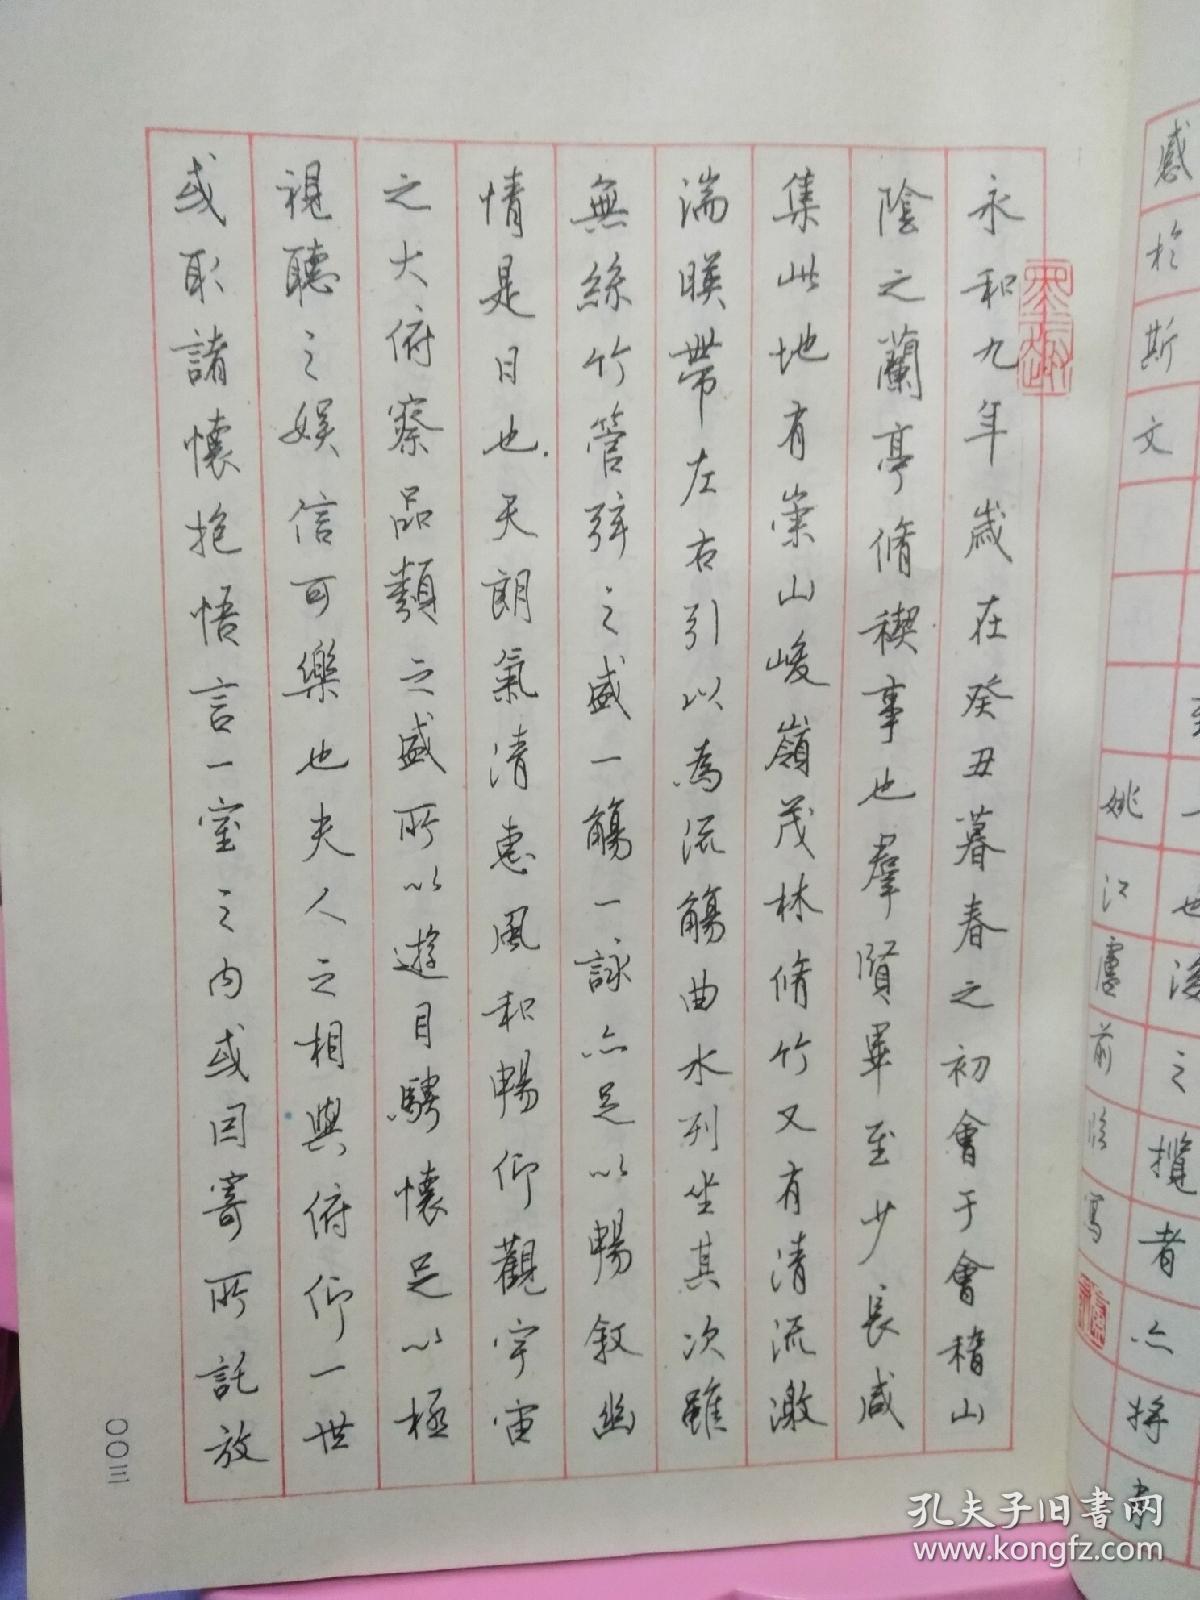 永和九年歲在癸丑暮春之初會于會稽山
陰之蘭亭脩稧事也羣賢畢至少長咸
集此地有崇山峻嶺茂林脩竹又有清流激
湍暎帶左右引以為流觴曲水列坐其次雖
無絲竹管弦之盛一觴一詠亦足以暢敘幽
情是日也天朗氣清惠風和暢仰觀宇宙
之大俯察品類之盛所以遊目騁懷足以極
視聽之娛信可樂也夫人之相與俯仰一世
或取諸懷抱悟言一室之內或因寄所託放
〇〇三
也後之攬者亦將有
感於斯文
姚江盧前臨寫
孔夫子旧书网
www.kongfz.com